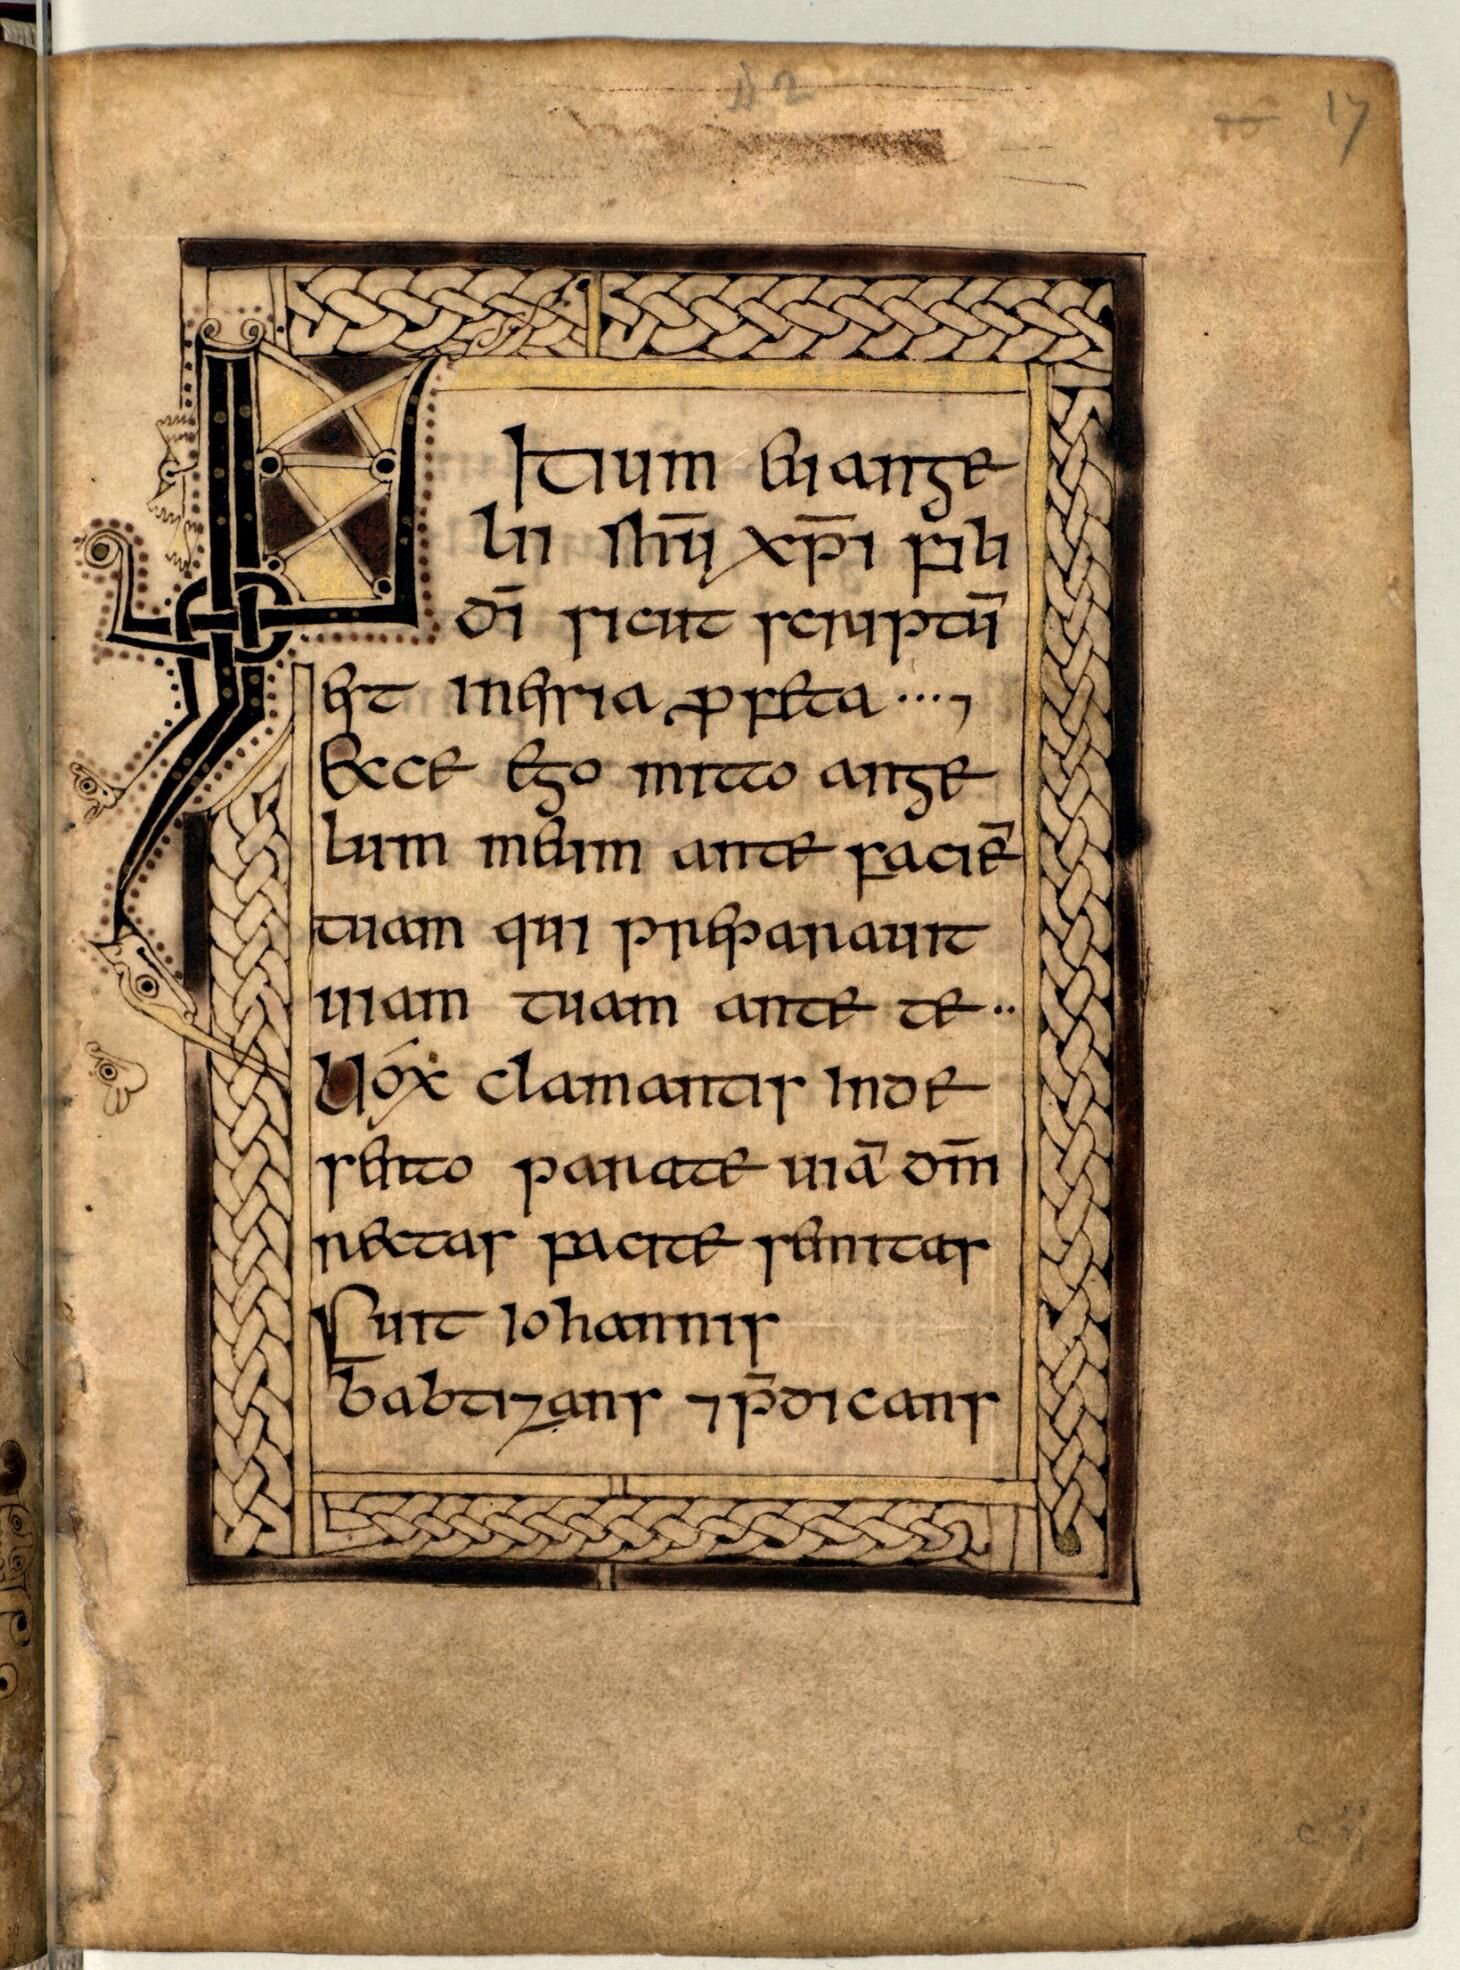 17
INItium euange
lii ihū xp̄i fili
dī sicut scriptū
est inessia profeta
Ecce ego mitto ange
lum meum ante faciē
tuam qui preparauit
uiam tuam ante te
Uox clamantis inde
serto parate uiā dm̄
rectas facite semitas
Fuit iohannis
babtizans ⁊ p̄dicans